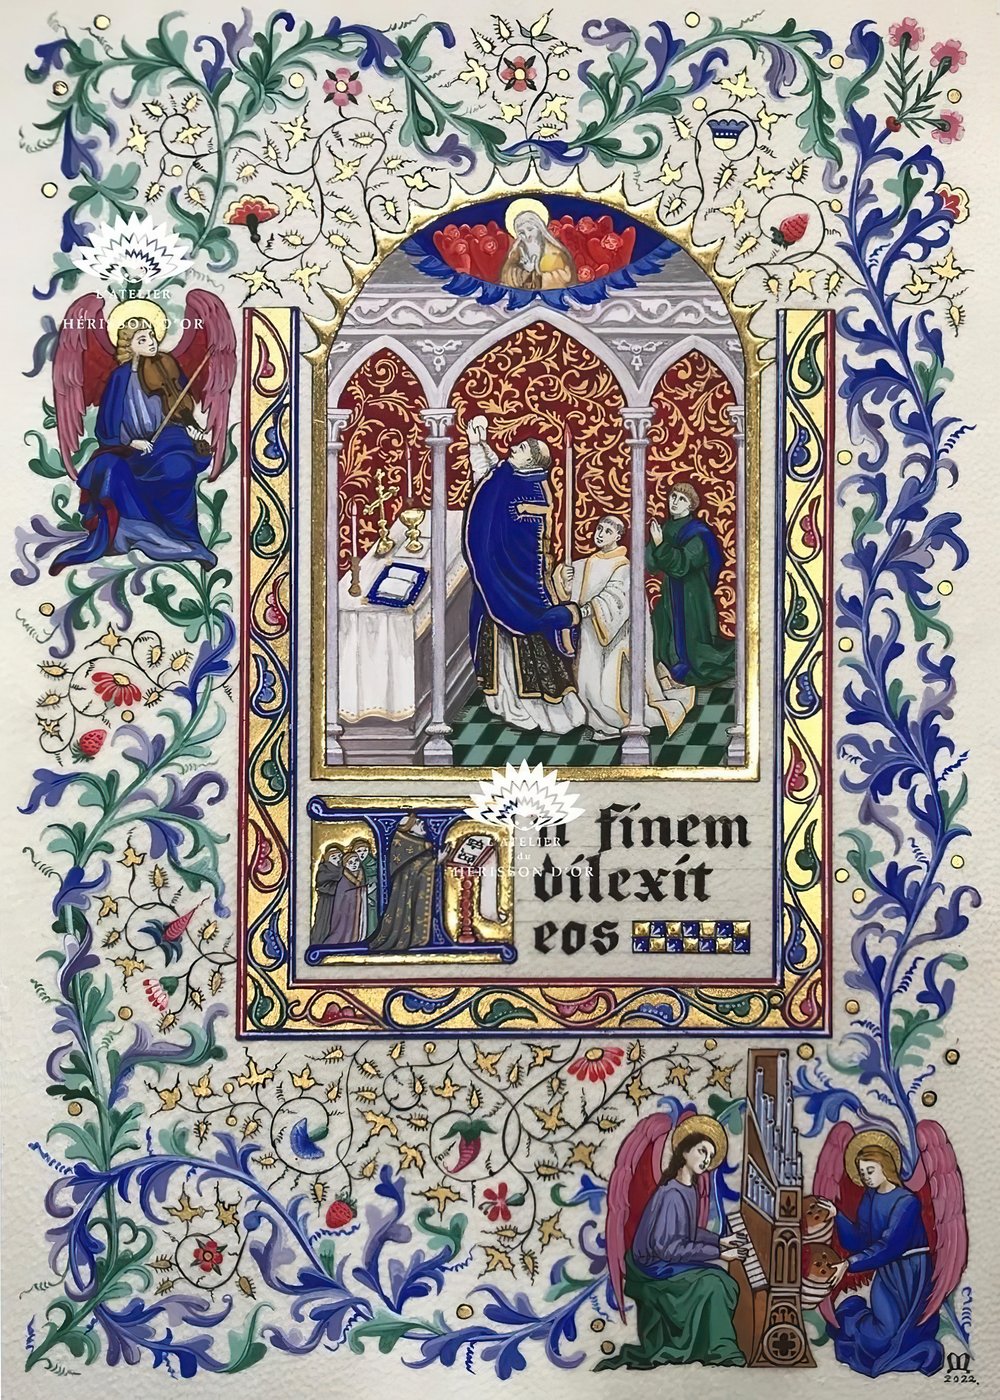 L'ATELIER
du
HÉRISSON D'OR
In finem
dilexit
eos
L'ATELIER
du
HÉRISSON D'OR
M
2022.